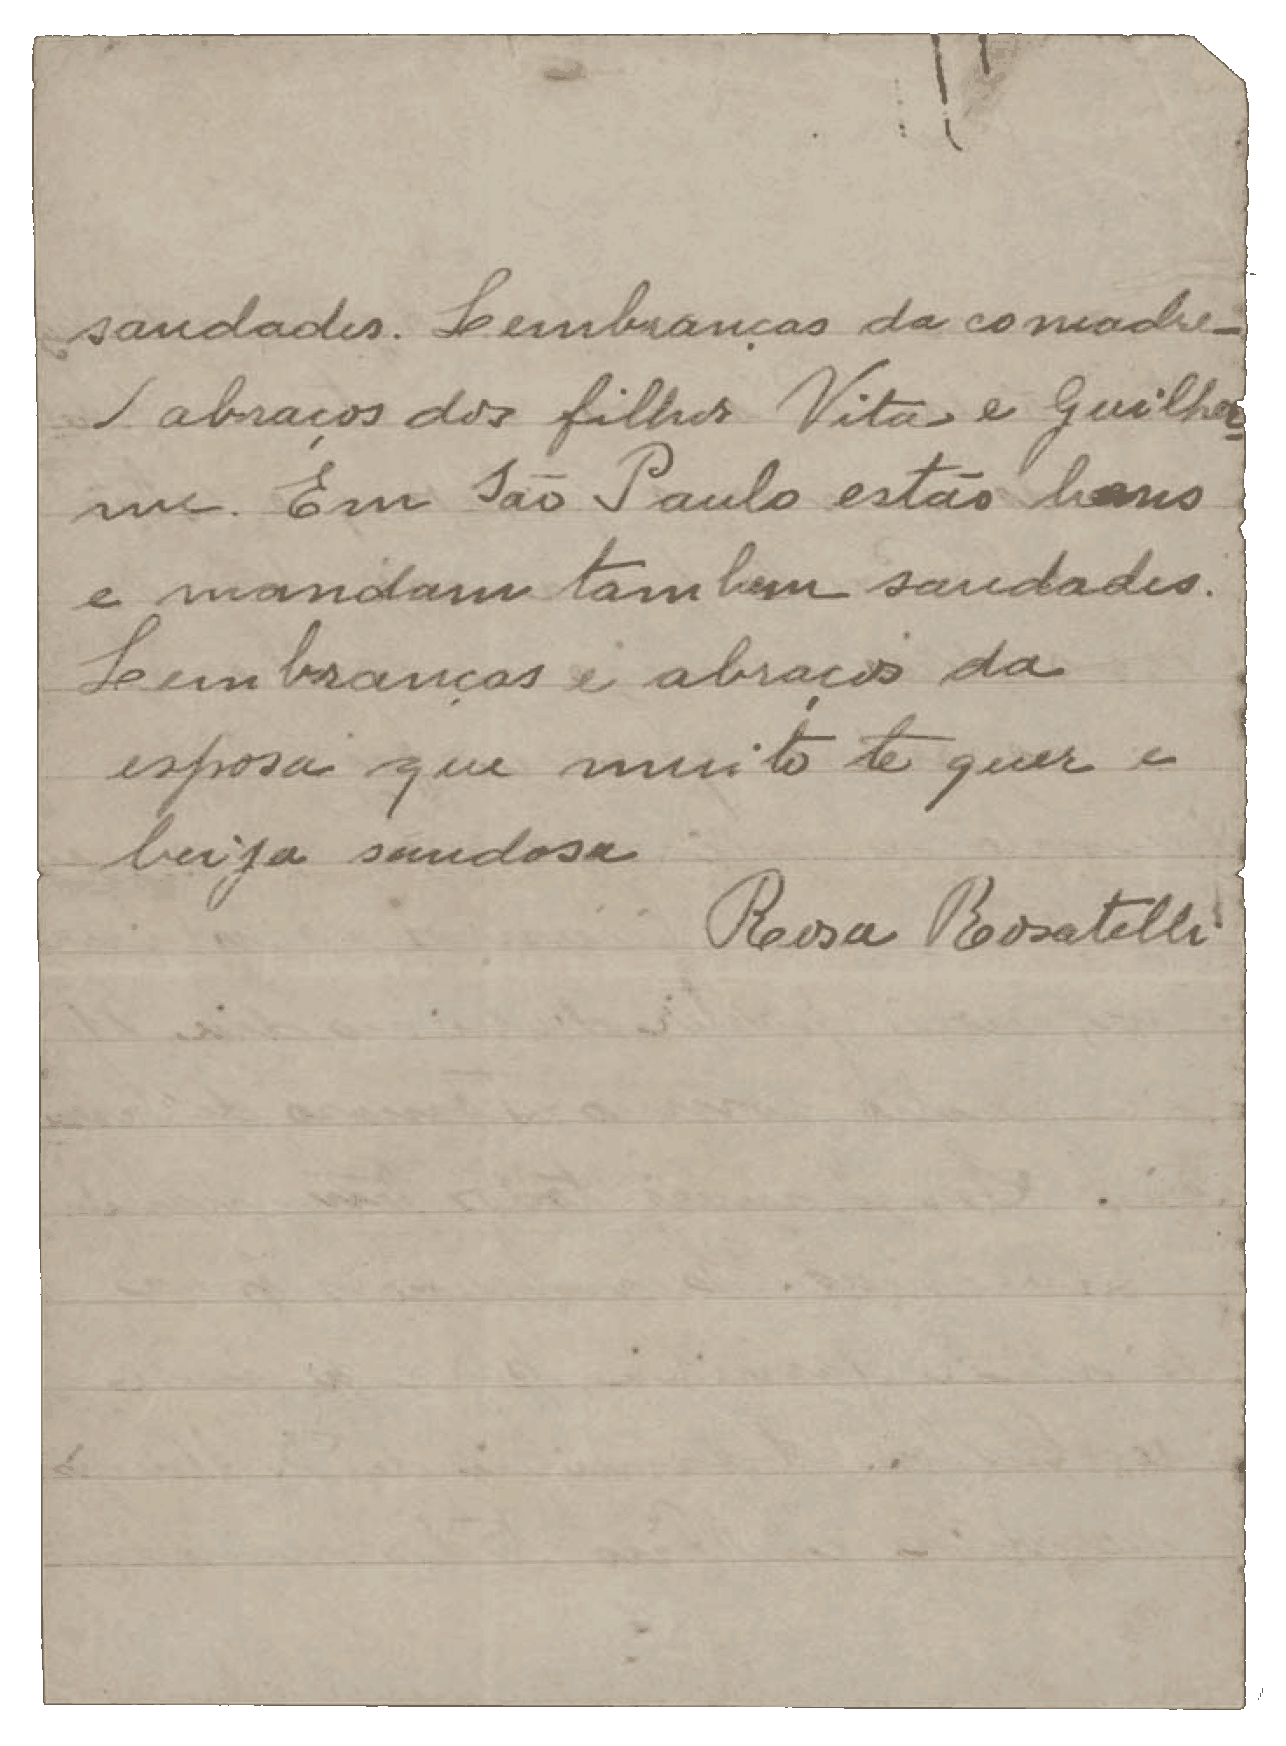 saudades. Lembranças da comadre-
/ abraços dos filhos Vita e Guilher-
me. Em São Paulo estão bons
e mandam tambem saudades.
Lembranças e abraços da
esposa que muito te quer e
beija saudosa
Rosa Rosatelli